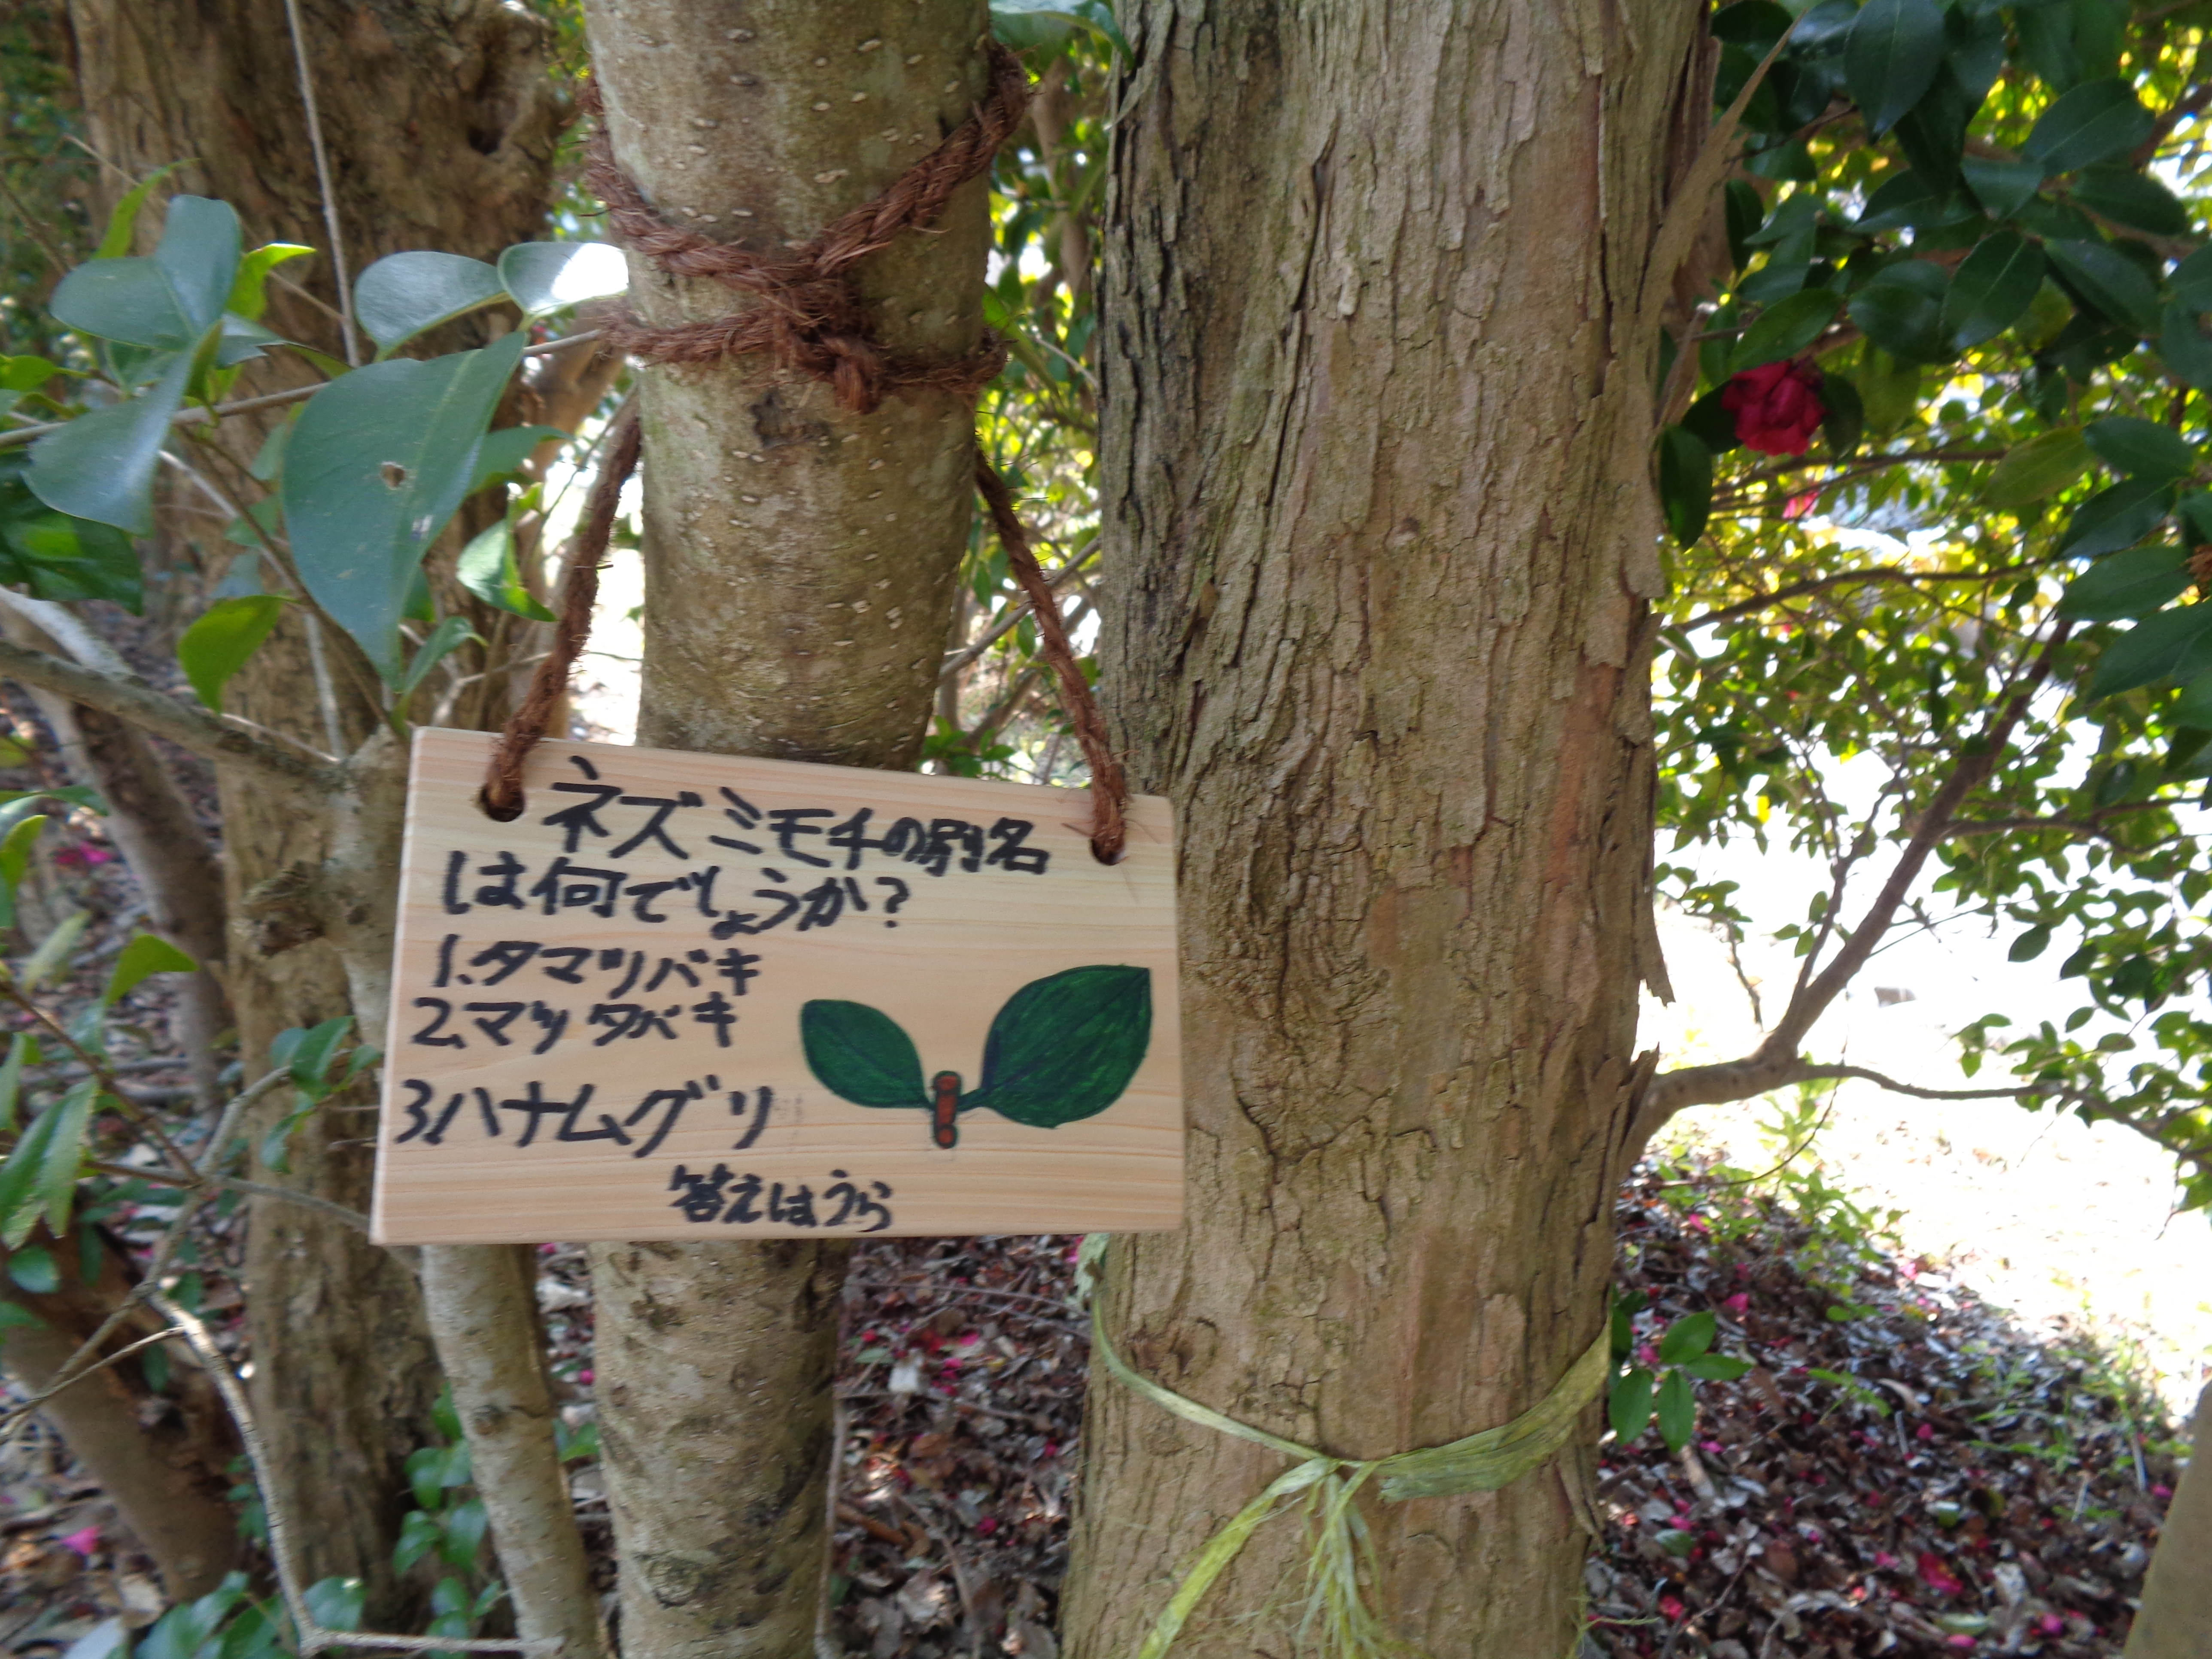 ネズミモチの別名
は何でしょうか?
1.タマツバキ
2.マツタバキ
3.ハナムグリ
答えはうら